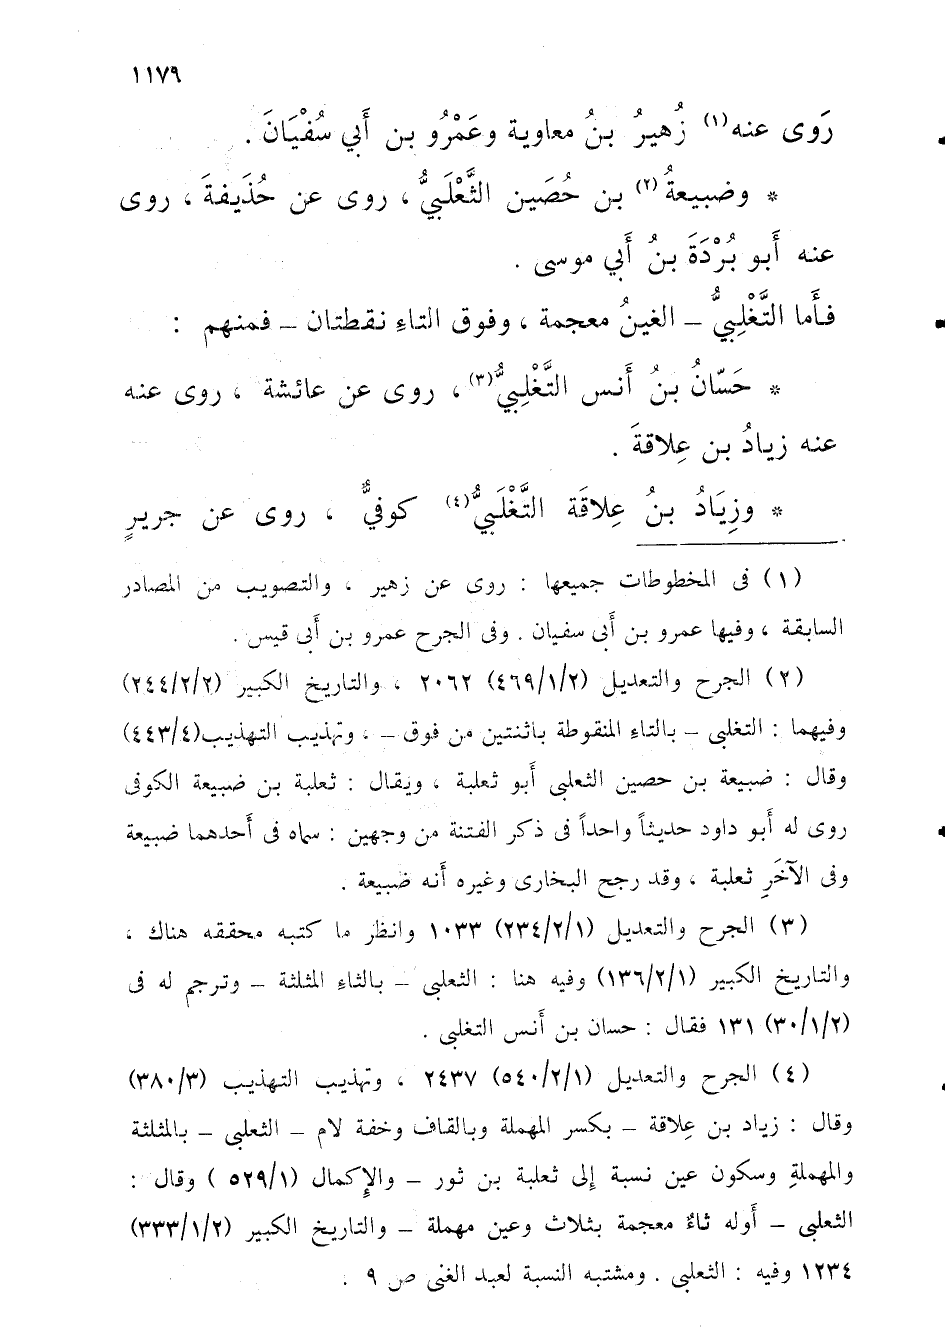 ١١٧٩
رَوى عنه(١) زُهيرُ بنُ معاوية وعَمْرُو بن أَبي سُفْيَانَ .
* وضبيعةُ(٢) بن حُصَين الثَّعْلَبيُّ ، روى عن حُذَيفةَ ، روى
عنه أَبو بُرْدَةَ بنُ أَبي موسى .
فأَما التَّغْلِبيُّ – الغينُ معجمة ، وفوق التاءِ نقطتان – فمنهم :
* حَسّانُ بنُ أَنس التَّغْلِبيُّ(٣) ، روى عن عائشة ، روى عنه
عنه زيادُ بن عِلاقةَ .
* وزِيَادُ بنُ عِلاقَة التَّغْلَبيُّ(٤) كوفيٌّ ، روى عن جريرٍ
(١) فى المخطوطات جميعها : روى عن زهير ، والتصويب من المصادر
السابقة ، وفيها عمرو بن أَبى سفيان . وفى الجرح عمرو بن أَبى قيس .
(٢) الجرح والتعديل (٤٦٩/١/٢) ٢٠٦٢ ، والتاريخ الكبير (٢٤٤/٢/٢)
وفيهما : التغلبى – بالتاءِ المنقوطة باثنتين من فوق – ، وتهذيب التهذيب(٤٤٣/٤)
وقال : ضبيعة بن حصين الثعلبى أَبو ثعلبة ، ويقال : ثعلبة بن ضبيعة الكوفى
روى له أَبو داود حديثاً واحداً فى ذكر الفتنة من وجهين : سماه فى أَحدهما ضبيعة
وفى الآخَرِ ثعلبة ، وقد رجح البخارى وغيره أَنه ضبيعة .
(٣) الجرح والتعديل (٢٣٤/٢/١) ١٠٣٣ وانظر ما كتبه محققه هناك ،
والتاريخ الكبير (١٣٦/٢/١) وفيه هنا : الثعلبى – بالثاء المثلثة – وترجم له فى
(٣٠/١/٢) ١٣١ فقال : حسان بن أَنس التغلبى .
(٤) الجرح والتعديل (٥٤٠/٢/١) ٢٤٣٧ ، وتهذيب التهذيب (٣٨٠/٣)
وقال : زياد بن عِلاقة – بكسر المهملة وبالقاف وخفة لام – الثعلبى – بالمثلثة
والمهملةِ وسكون عين نسبة إلى ثعلبة بن ثور – والإكمال (٥٢٩/١ ) وقال :
الثعلبى – أَوله ثاءٌ معجمة بثلاث وعين مهملة – والتاريخ الكبير (٣٣٣/١/٢)
١٢٣٤ وفيه : الثعلبى . ومشتبه النسبة لعبد الغنى ص ٩ .